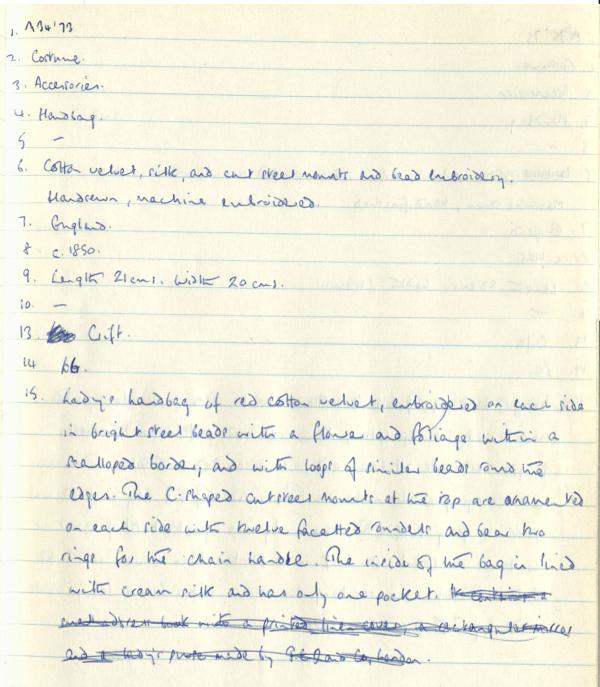 1. A34'73
2. Costume.
3. Accessories.
4. Handbag.
5 —
6. Cotton velvet, silk, and cut steel mounts and bead embroidery.
Handsewn, machine embroidered.
7. England.
8 c. 1850.
9. Length 21 cms. Width 20 cms.
10. —
13. Gift.
14 66.
15. Lady's handbag of red cotton velvet, embroidered on each side
in bright steel beads with a flower and foliage within a
scalloped border, and with loops of similar beads round the
edges. The C-shaped cut steel mounts at the top are ornamented
on each side with twelve facetted roundels and bear two
rings for the chain handle. The inside of the bag is lined
with cream silk and has only one pocket. It contains a
address book with a printed linen cover, a rectangular mirror
and a lady's purse made by London.